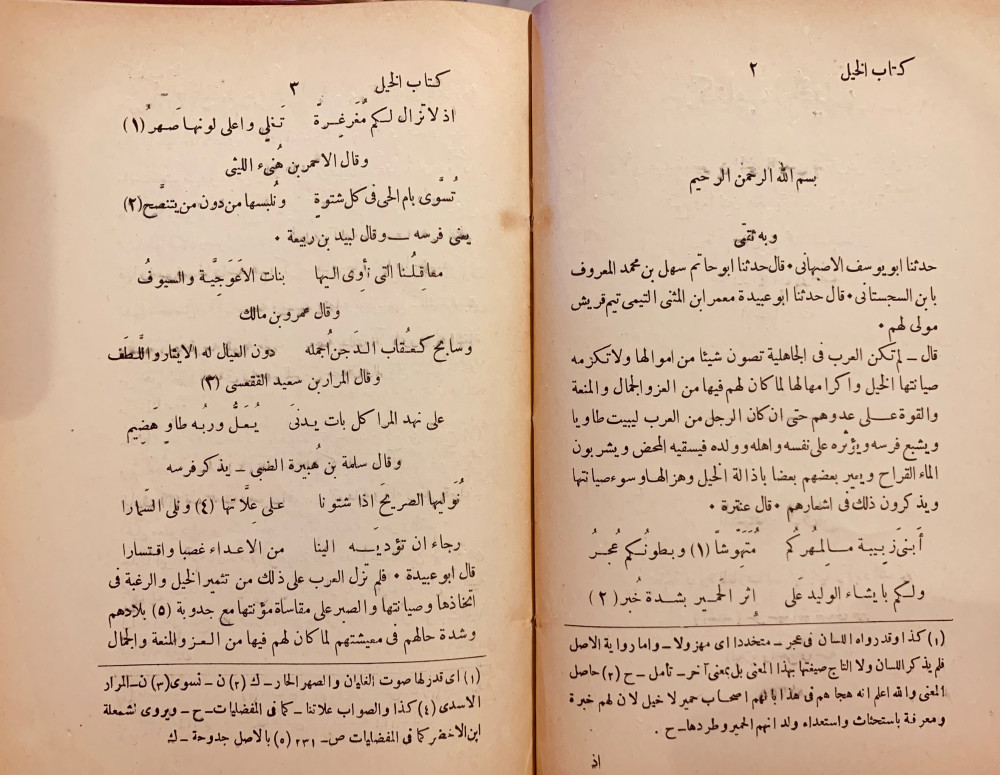 كتاب الخيل ٢
بسم الله الرحمن الرحيم
وبه ثقتى
حدثنا ابو يوسف الاصبهانى • قال حدثنا ابو حاتم سهل بن محمد المعروف
بابن السجستانى • قال حدثنا ابو عبيدة معمر ابن المثنى التيمى تيم قريش
مولى لهم •
قال ــ لم تكن العرب فى الجاهلية تصون شيئا من اموالها ولا تكرمه
صيانتها الخيل واكرامها لها لما كان لهم فيها من العز والجمال والمنعة
والقوة على عدوهم حتى ان كان الرجل من العرب ليبيت طاويا
ويشبع فرسه ويؤثره على نفسه واهله وولده فيسقيه المحض ويشربون
الماء القراح ويعير بعضهم بعضا باذالة الخيل وهزالها وسوء صيانتها
ويذكرون ذلك فى اشعارهم • قال عنترة •
أَبنى زَبيبة ما لِمُهركُم مُتَهَوِّشاً (١) وبطونُكم عُجرُ
ولكم بايشاء الوليد عَلَى اِثر الحَمير بشدة خُبر (٢)
(١) كذا وقد رواه اللسان فى عجر ــ متخددا اى مهزولا ــ واما رواية الاصل
فلم يذكر اللسان ولا التاج صيغتها بهذا المعنى بل بمعنى آخر ــ تأمل ــ ح (٢) حاصل
المعنى والله اعلم انه هجاهم فى هذا بانهم اصحاب حمير لا خيل لان لهم خبرة
ومعرفة باستحثاث واستعداء ولدانهم الحمير وطردها ــ ح .
اذ
كتاب الخيل ٣
اذ لا تزال لكم مُغَرغِرَة تَغلي واعلى لونها صَهرُ (١)
وقال الاحمر بن هُنىء الليثى
تُسَوَّى بام الحى فى كل شتوةٍ ونُلبسها من دون من يتنصَّح (٢)
يعنى فرسه ــ وقال لبيد بن ربيعة •
معاقلُنا التى نأوى اليها بنات الاَعوَجيَّة والسيوفُ
وقال عمرو بن مالك
وسابح كعُقاب الدَجن اُجمله دون العيال له الايثار واللَّطَف
وقال المرار بن سعيد الفقعسى (٣)
على نهد المراكل بات يدنَى يُعَلُّ وربُه طاوٍ هَضيم
وقال سلمة بن هُبيرة الضبى ــ يذكر فرسه
نُوَليها الصريحَ اذا شتونا على عِلَّاتها (٤) ونلى السَّمارا
رجاء ان تؤديه الينا من الاعداء غصبا واقتسارا
قال ابو عبيدة • فلم تزل العرب على ذلك من تثمير الخيل والرغبة فى
اتخاذها وصيانتها والصبر على مقاساة مؤنتها مع جدوبة (٥) بلادهم
وشدة حالهم فى معيشتهم لما كان لهم فيها من العز والمنعة والجمال
(١) اى قدر لها صوت الغليان والصهر الحار ــ ك (٢) ن ــ تسوى (٣) ن ــ المرار
الاسدى (٤) كذا والصواب علاتنا ــ كما فى المفضليات ــ ح ــ ويروى لشمعلة
ابن الاخضر كما فى المفضليات ص ــ ٢٣١ (٥) بالاصل جدوحة ــ ك